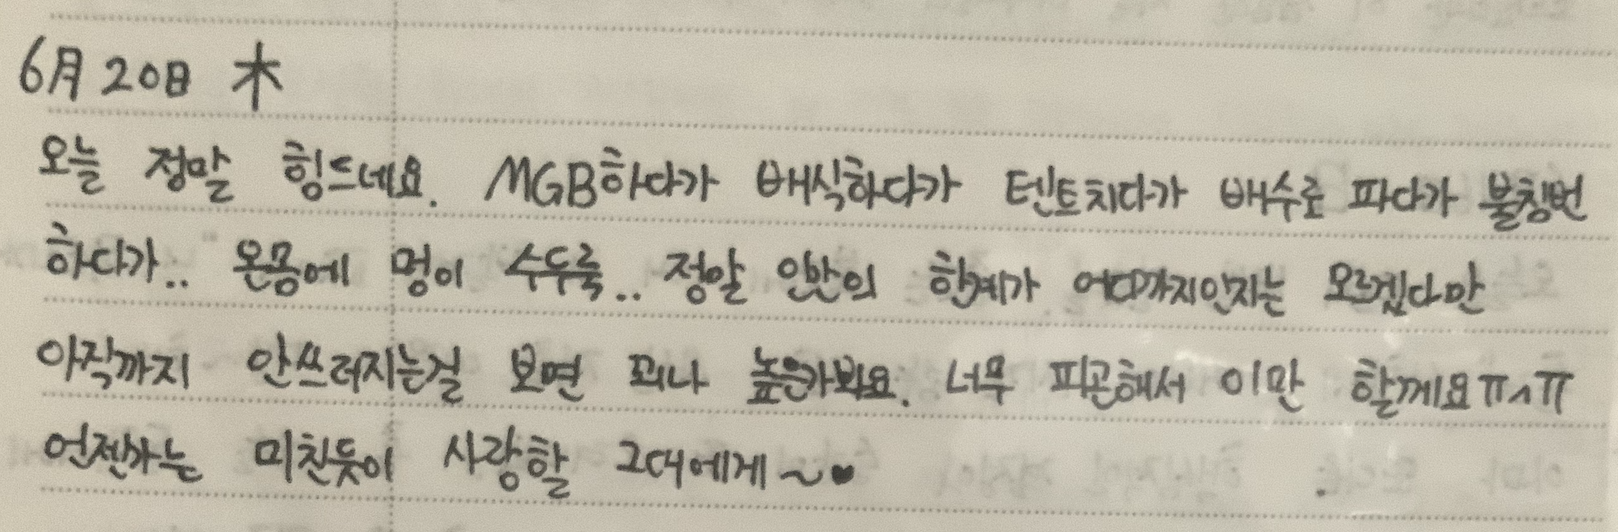 6月 20日 木
오늘 정말 힘드네요. MGB하다가 배식하다가 텐트치다가 배수로 파다가 불침번
하다가.. 온몸에 멍이 수두룩.. 정말 인간의 한계가 어디까지인지는 모르겠다만
아직까지 안쓰러지는걸 보면 꾀나 높은가봐요. 너무 피곤해서 이만 할께요 ㅠㅅㅠ
언젠가는 미친듯이 사랑할 그대에게~♥